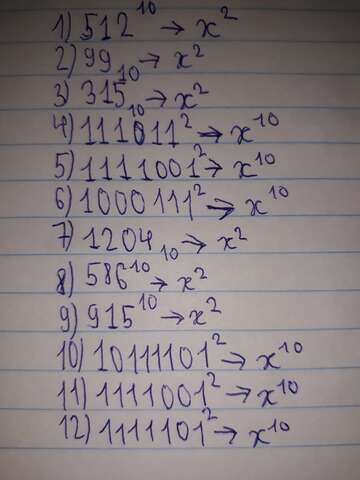 1) 512¹⁰ → x²
2) 99₁₀ → x²
3) 315₁₀ → x²
4) 111011² → x¹⁰
5) 1111001² → x¹⁰
6) 1000111² → x¹⁰
7) 1204₁₀ → x²
8) 586¹⁰ → x²
9) 915¹⁰ → x²
10) 10111101² → x¹⁰
11) 1111001² → x¹⁰
12) 1111101² → x¹⁰